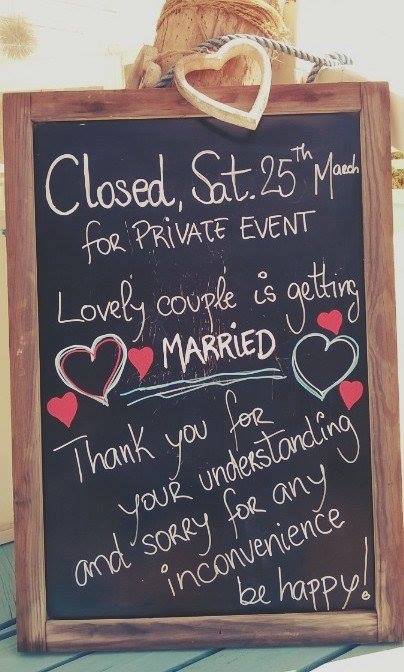 Closed, Sat. 25th March
for PRIVATE EVENT
Lovely couple is getting
MARRIED
Thank you for
your understanding
and sorry for any
inconvenience
be happy!